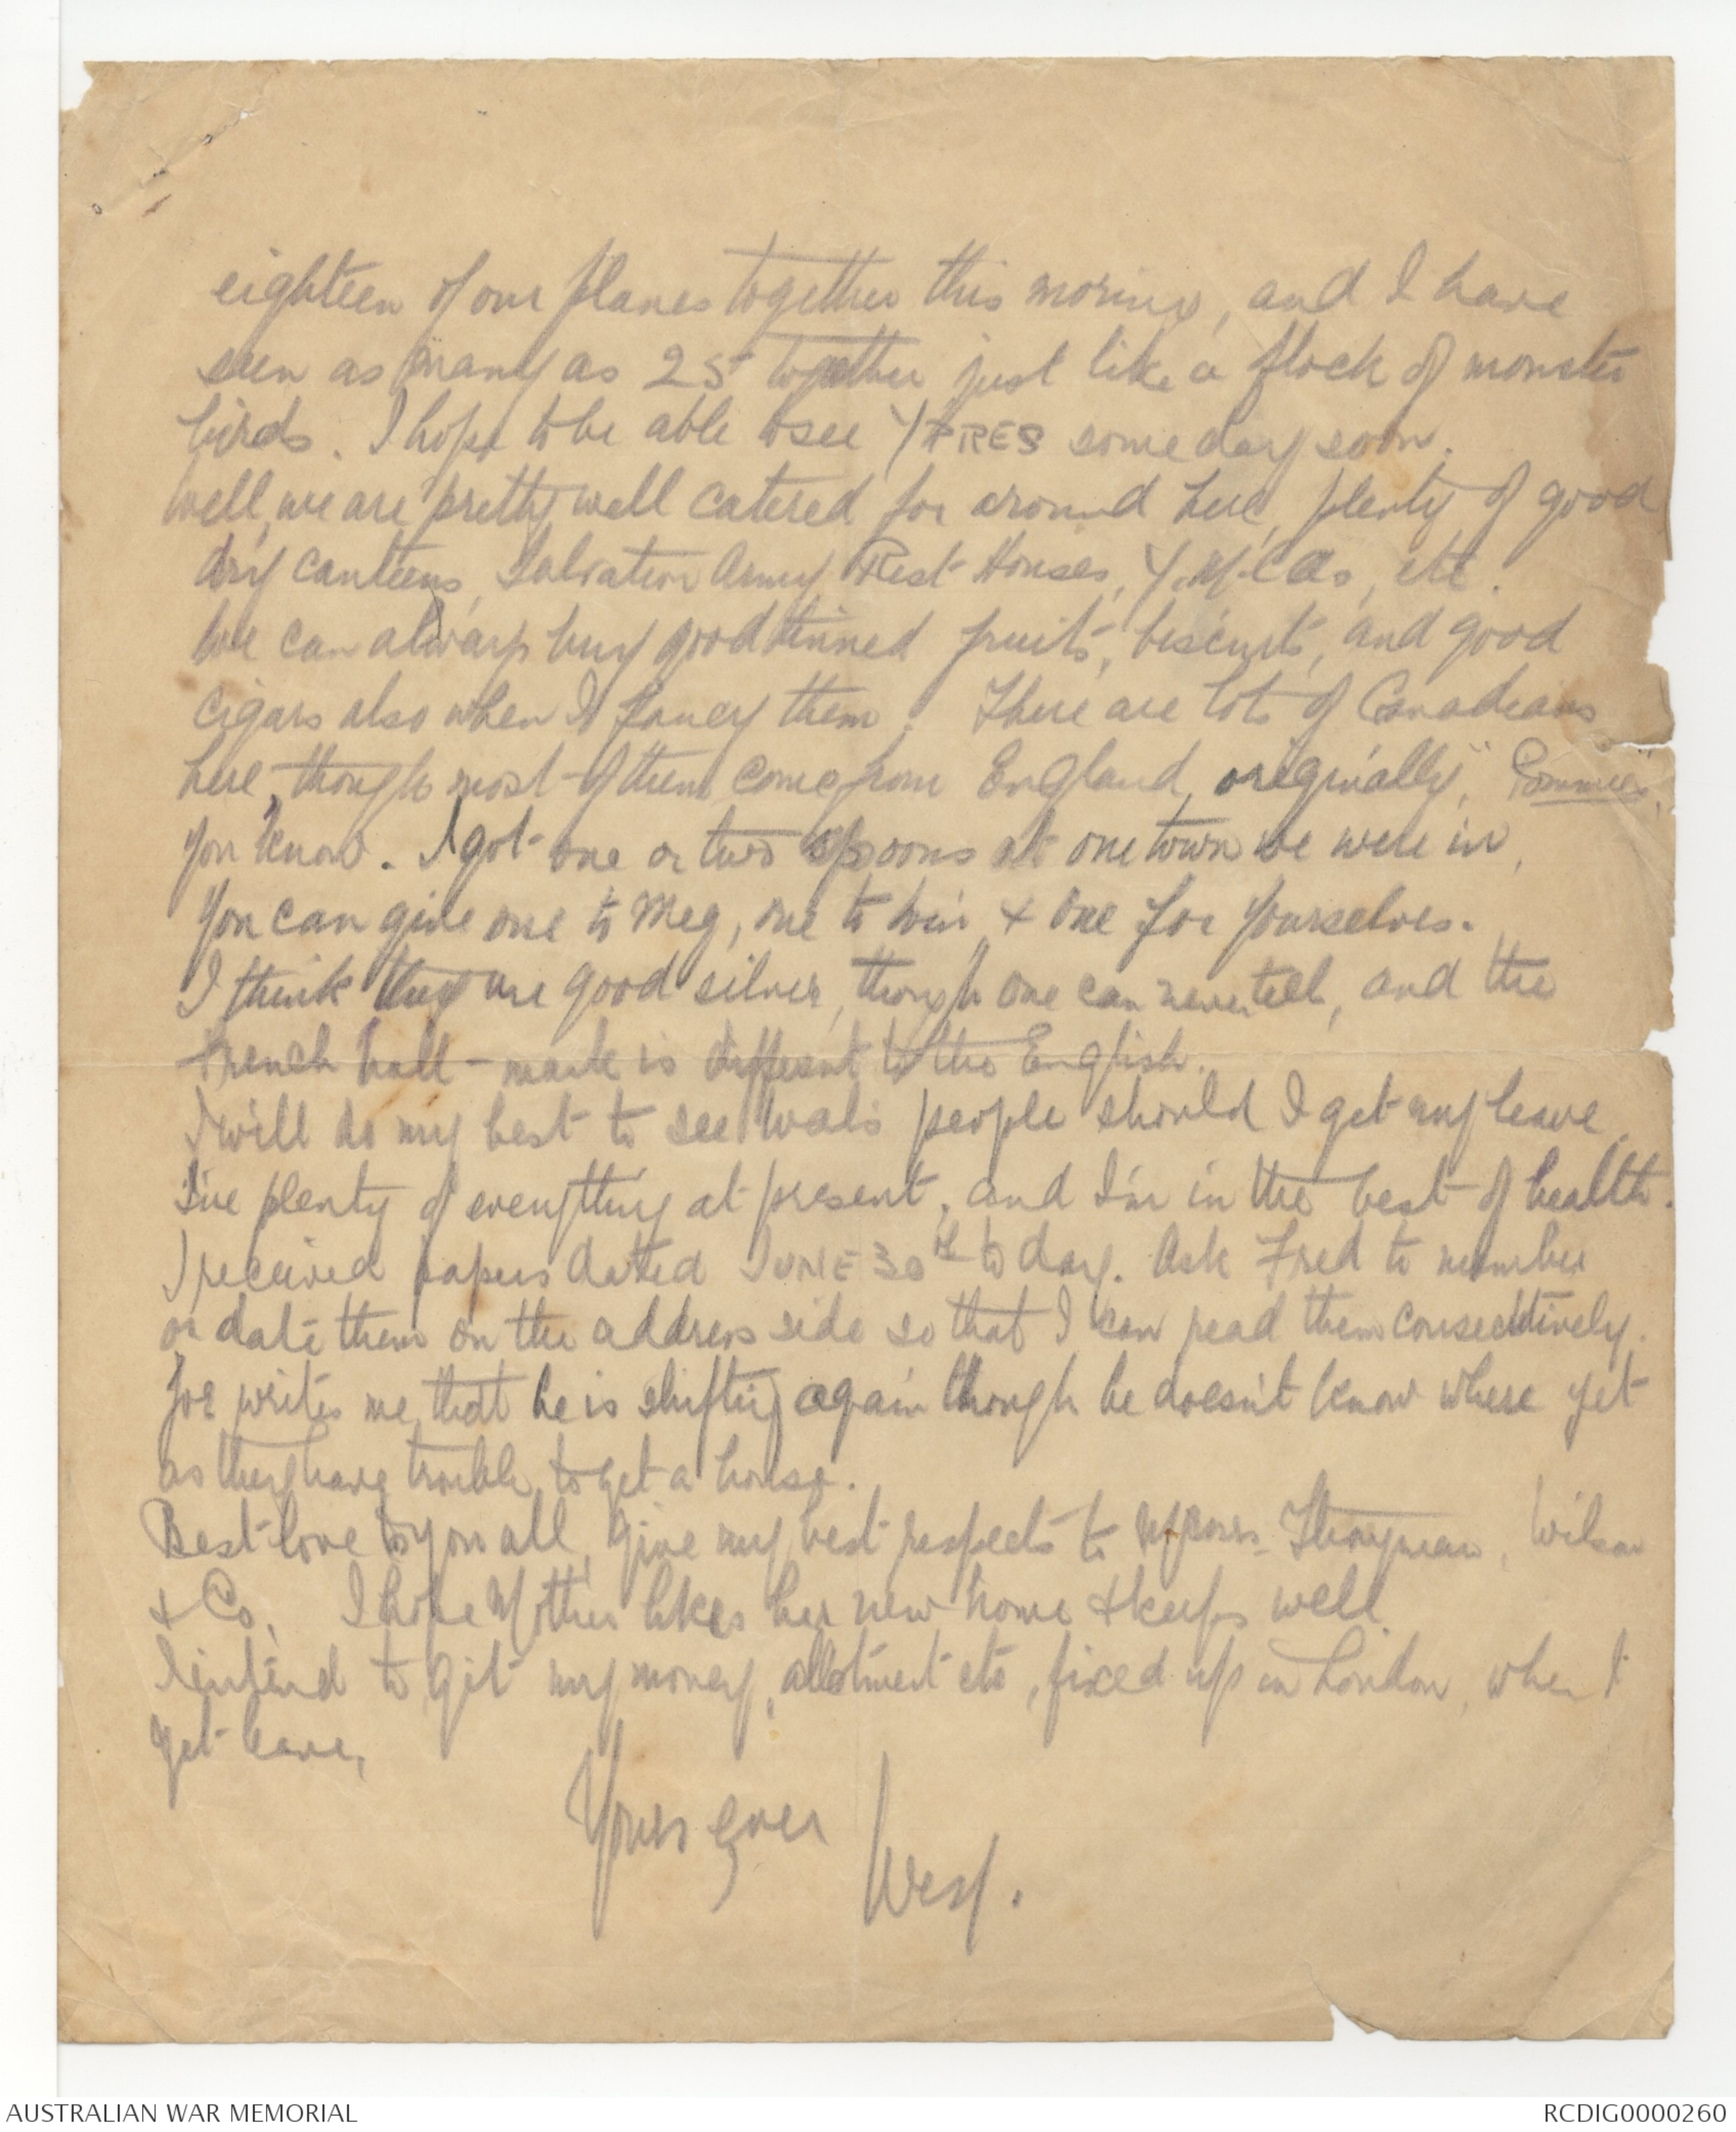 eighteen of our planes together this morning, and I have
seen as many as 25 together just like a flock of monster
birds. I hope to be able to see YPRES some day soon.
Well, we are pretty well catered for around here, plenty of good
dry canteens, Salvation Army Rest Houses, Y.M.C.As, etc.
We can always buy good tinned fruits, biscuits, and good
cigars also when I fancy them. There are lots of Canadians
here, though most of them come from England, "originally", Pommies,
you know. I got one or two spoons at one town we were in,
You can give one to Meg, one to Win & one for yourselves.
I think they are good silver, though one can never tell, and the
French hall-mark is different to the English.
I will do my best to see Wal's people should I get my leave.
I've plenty of everything at present, and I'm in the best of health.
I received papers dated JUNE 30th to day. Ask Fred to number
or date them on the address side so that I can read them consecutively.
Joe writes me, that he is shifting again though he doesn't know where yet
as they have trouble to get a house.
Best love to you all, give my best respects to Wilson
& Co. I hope Mother likes her new home & keeps well.
I intend to get my money, allotment etc, fixed up in London, when I
get leave,
Yours ever
Wesy.
AUSTRALIAN WAR MEMORIAL
RCDIG0000260